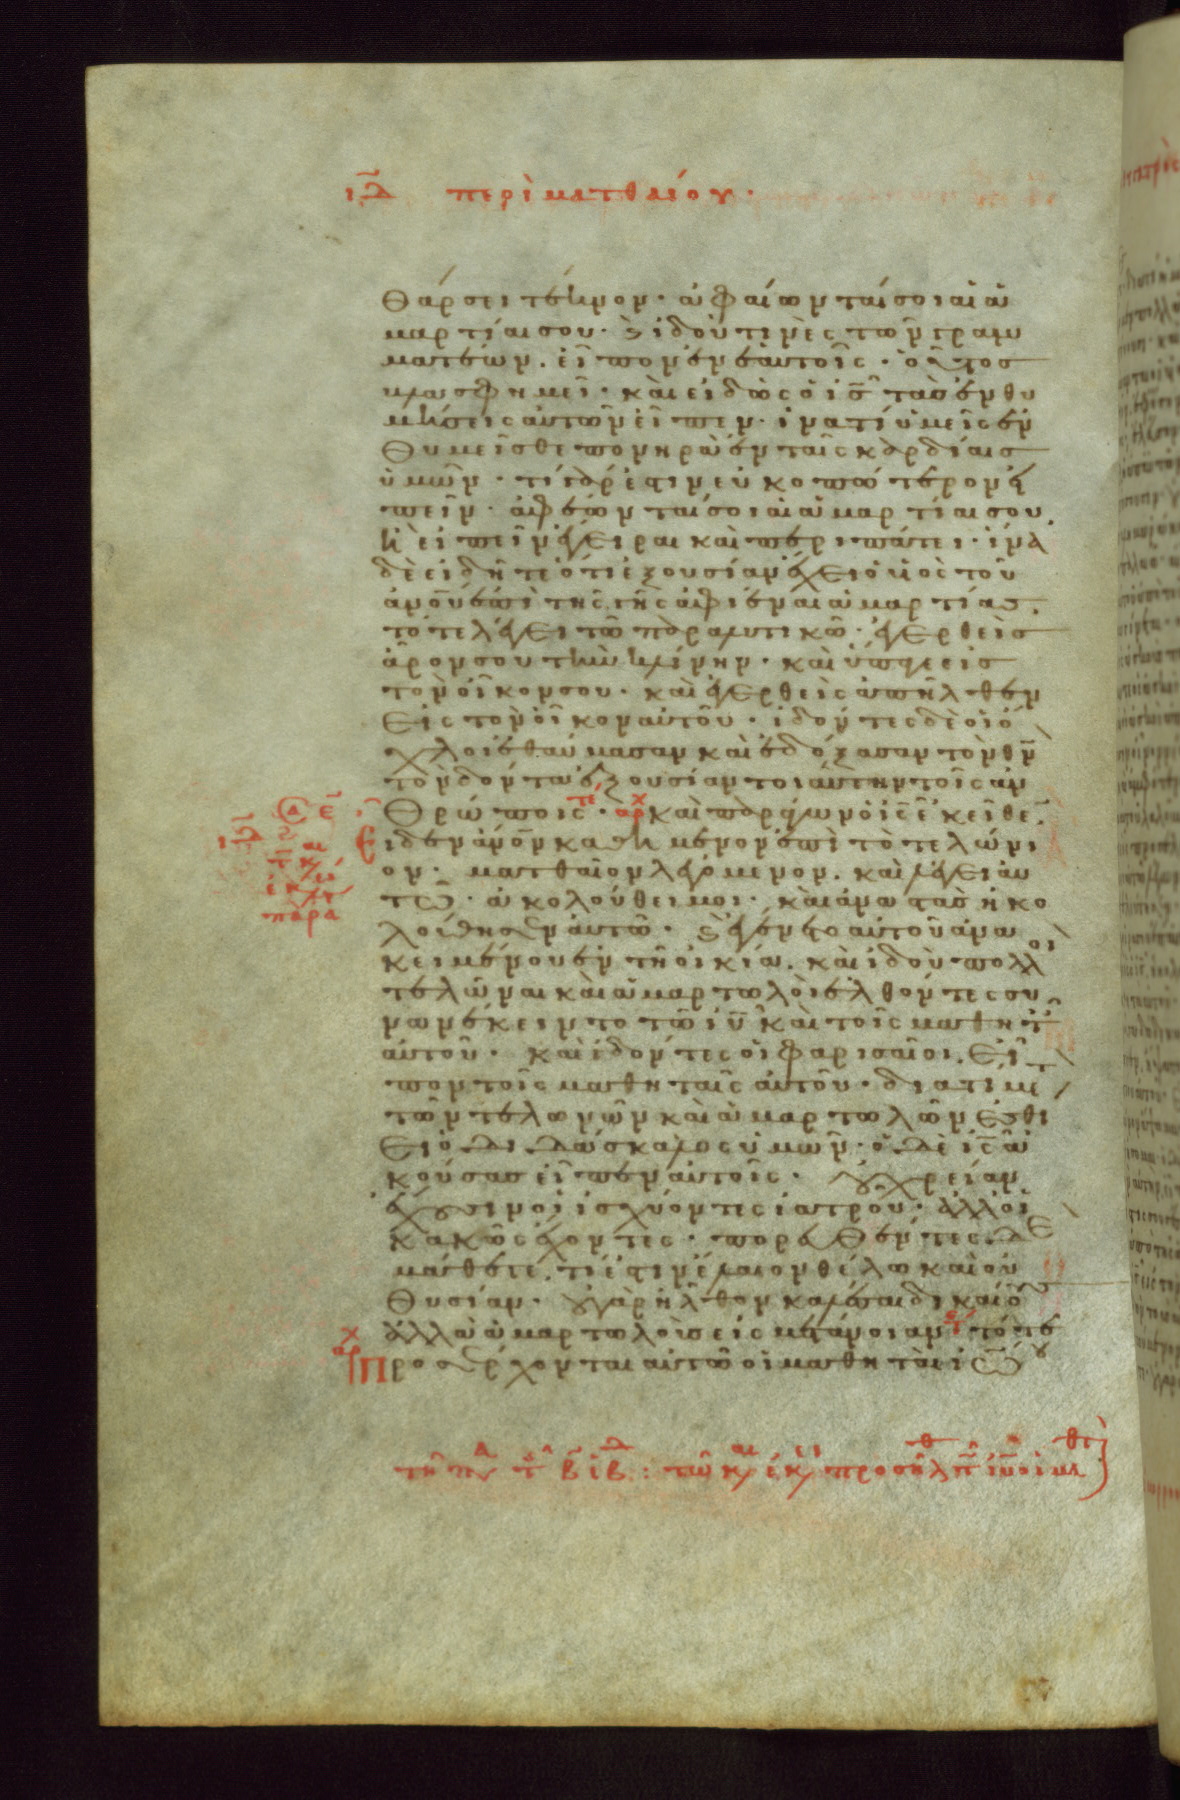 ιδ περὶ ματθαίου·
θάρσει τέκνον· ἀφαίωνταί σοι αἱ ἁ
μαρτίαι σου· καὶ ἰδού τινὲς τῶν γραμ
ματέων. εἶπον ἐν ἑαυτοῖς· οὗτος
βλασφημεῖ· καὶ εἰδὼς ὁ ις τὰς ἐνθυ
μήσεις αὐτῶν εἶπεν· ἱνατί ὑμεῖς ἐν
θυμεῖσθε πονηρὰ ἐν ταῖς καρδίαις
ὑμῶν· τί γάρ ἐστιν εὐκοπώτερον εἰ
πεῖν· ἀφέωνταί σοι αἱ ἁμαρτίαι σου.
ἢ εἰπεῖν ἔγειραι καὶ περιπάτει· ἵνα
δὲ εἰδῆτε ὅτι ἐξουσίαν ἔχει ὁ υἱὸς τοῦ
ανου ἐπὶ τῆς γῆς ἀφιέναι ἁμαρτίας.
τότε λέγει τῶ παραλυτικῶ· ἐγερθεὶς
ἆρον σου τὴν κλίνην· καὶ ὕπαγε εἰς
τὸν οἶκον σου· καὶ ἐγερθεὶς ἀπῆλθεν
εἰς τὸν οἶκον αὐτοῦ· ἰδόντες δὲ οἱ ὄ
χλοι ἐθαύμασαν καὶ ἐδόξασαν τὸν θν
τὸν δόντα ἐξουσίαν τοιαύτην τοῖς ἀν
θρώποις· τε αρχ καὶ παράγων ὁ ις ἐκεῖθεν
εἶδεν ανον καθήμενον ἐπὶ τὸ τελώνι
ον· ματθαῖον λεγόμενον. καὶ λέγει αὐ
τῶ· ἀκολούθει μοι· καὶ ἀναστὰς ἠκο
λούθησεν αὐτῶ· καὶ ἐγένετο αὐτοῦ ἀνα
κειμένου ἐν τῆ οἰκία. καὶ ἰδοὺ πολλοὶ
τελῶναι καὶ ἁμαρτωλοὶ ἐλθόντες συ
νανέκειντο τῶ ιυ καὶ τοῖς μαθητ
αὐτοῦ· καὶ ἰδόντες οἱ φαρισαῖοι. εἶ
πον τοῖς μαθηταῖς αὐτοῦ· διατί με
τῶν τελωνῶν καὶ ἁμαρτωλῶν ἐσθί
ει ὁ διδάσκαλος ὑμῶν· ὁ δὲ ις ἀ
κούσας εἶπεν αὐτοῖς· οὐ χρείαν
ἔχουσιν οἱ ἰσχύοντες ἰατροῦ· ἀλλ οἱ
κακῶς ἔχοντες· πορευθέντες δὲ
μάθετε. τί ἐστιν ἔλεον θέλω καὶ οὐ
θυσίαν· οὐ γὰρ ἦλθον καλέσαι δικαίους
ἀλλὰ ἁμαρτωλοὺς εἰς μετάνοιαν· τότε
αρχ προσέρχονται αὐτῶ οἱ μαθηταὶ ιω